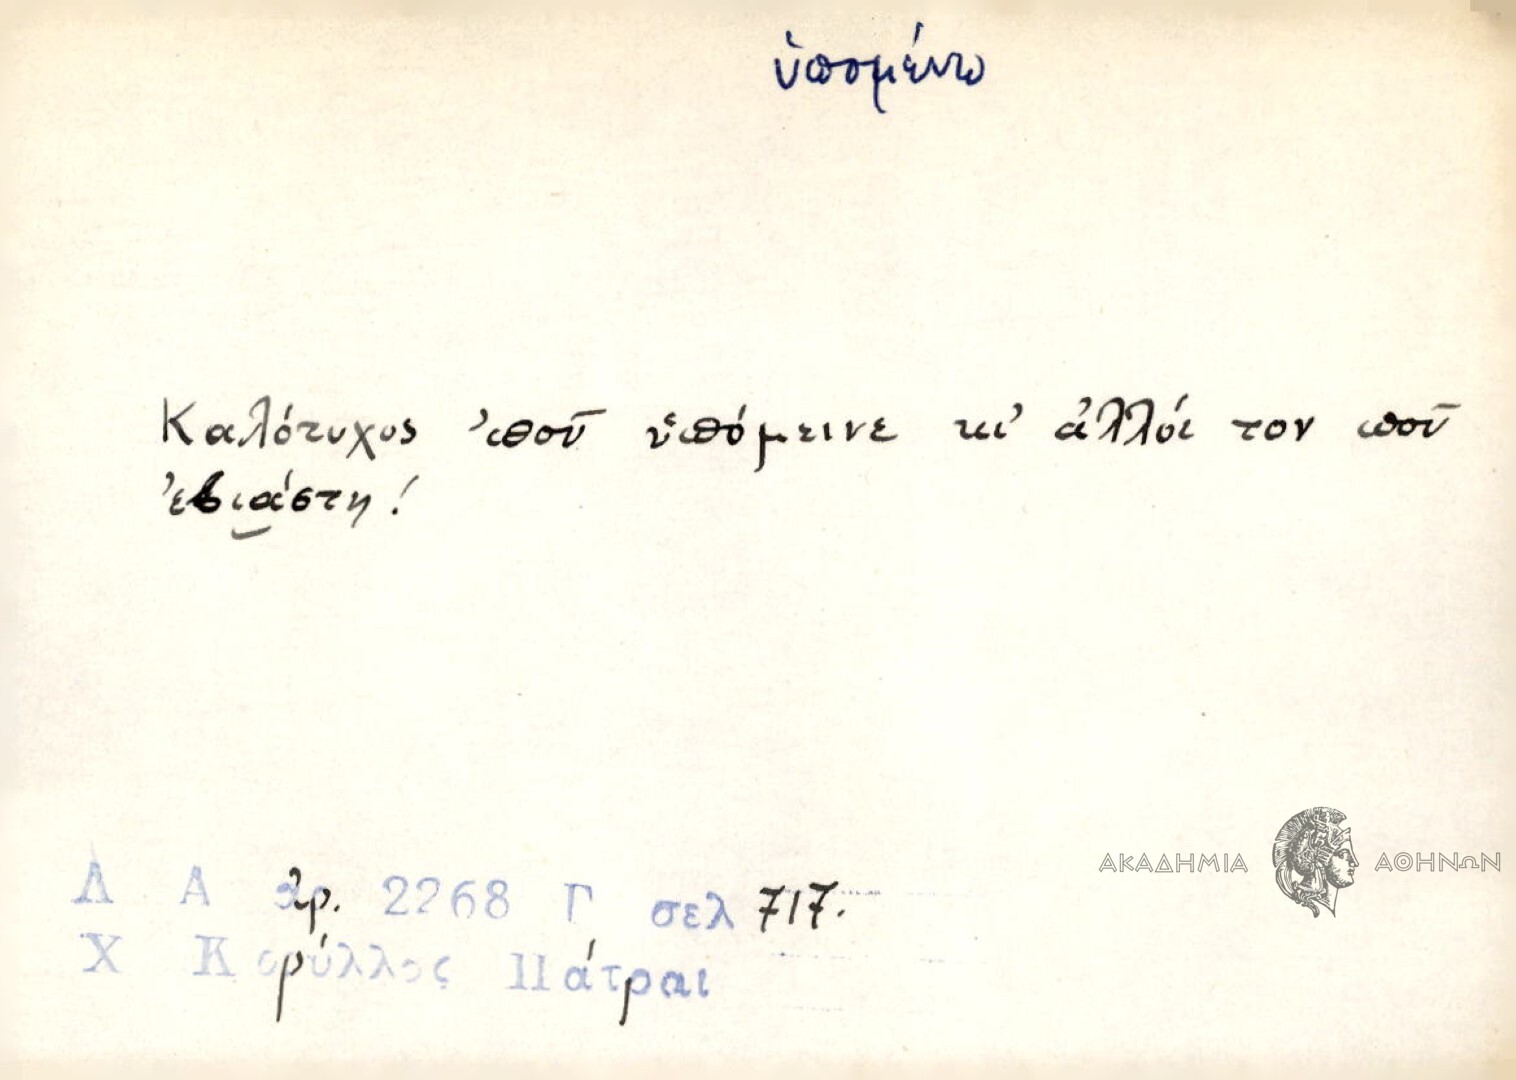 ὑπομένω
Καλότυχος ὁποῦ ὑπόμεινε κι' ἀλλοί τον ποῦ
ἐβιάστη!
Λ Α ἀρ. 2268 Γ σελ 717.
Χ Κορύλλος Πάτραι
ΑΚΑΔΗΜΙΑ ΑΘΗΝΩΝ